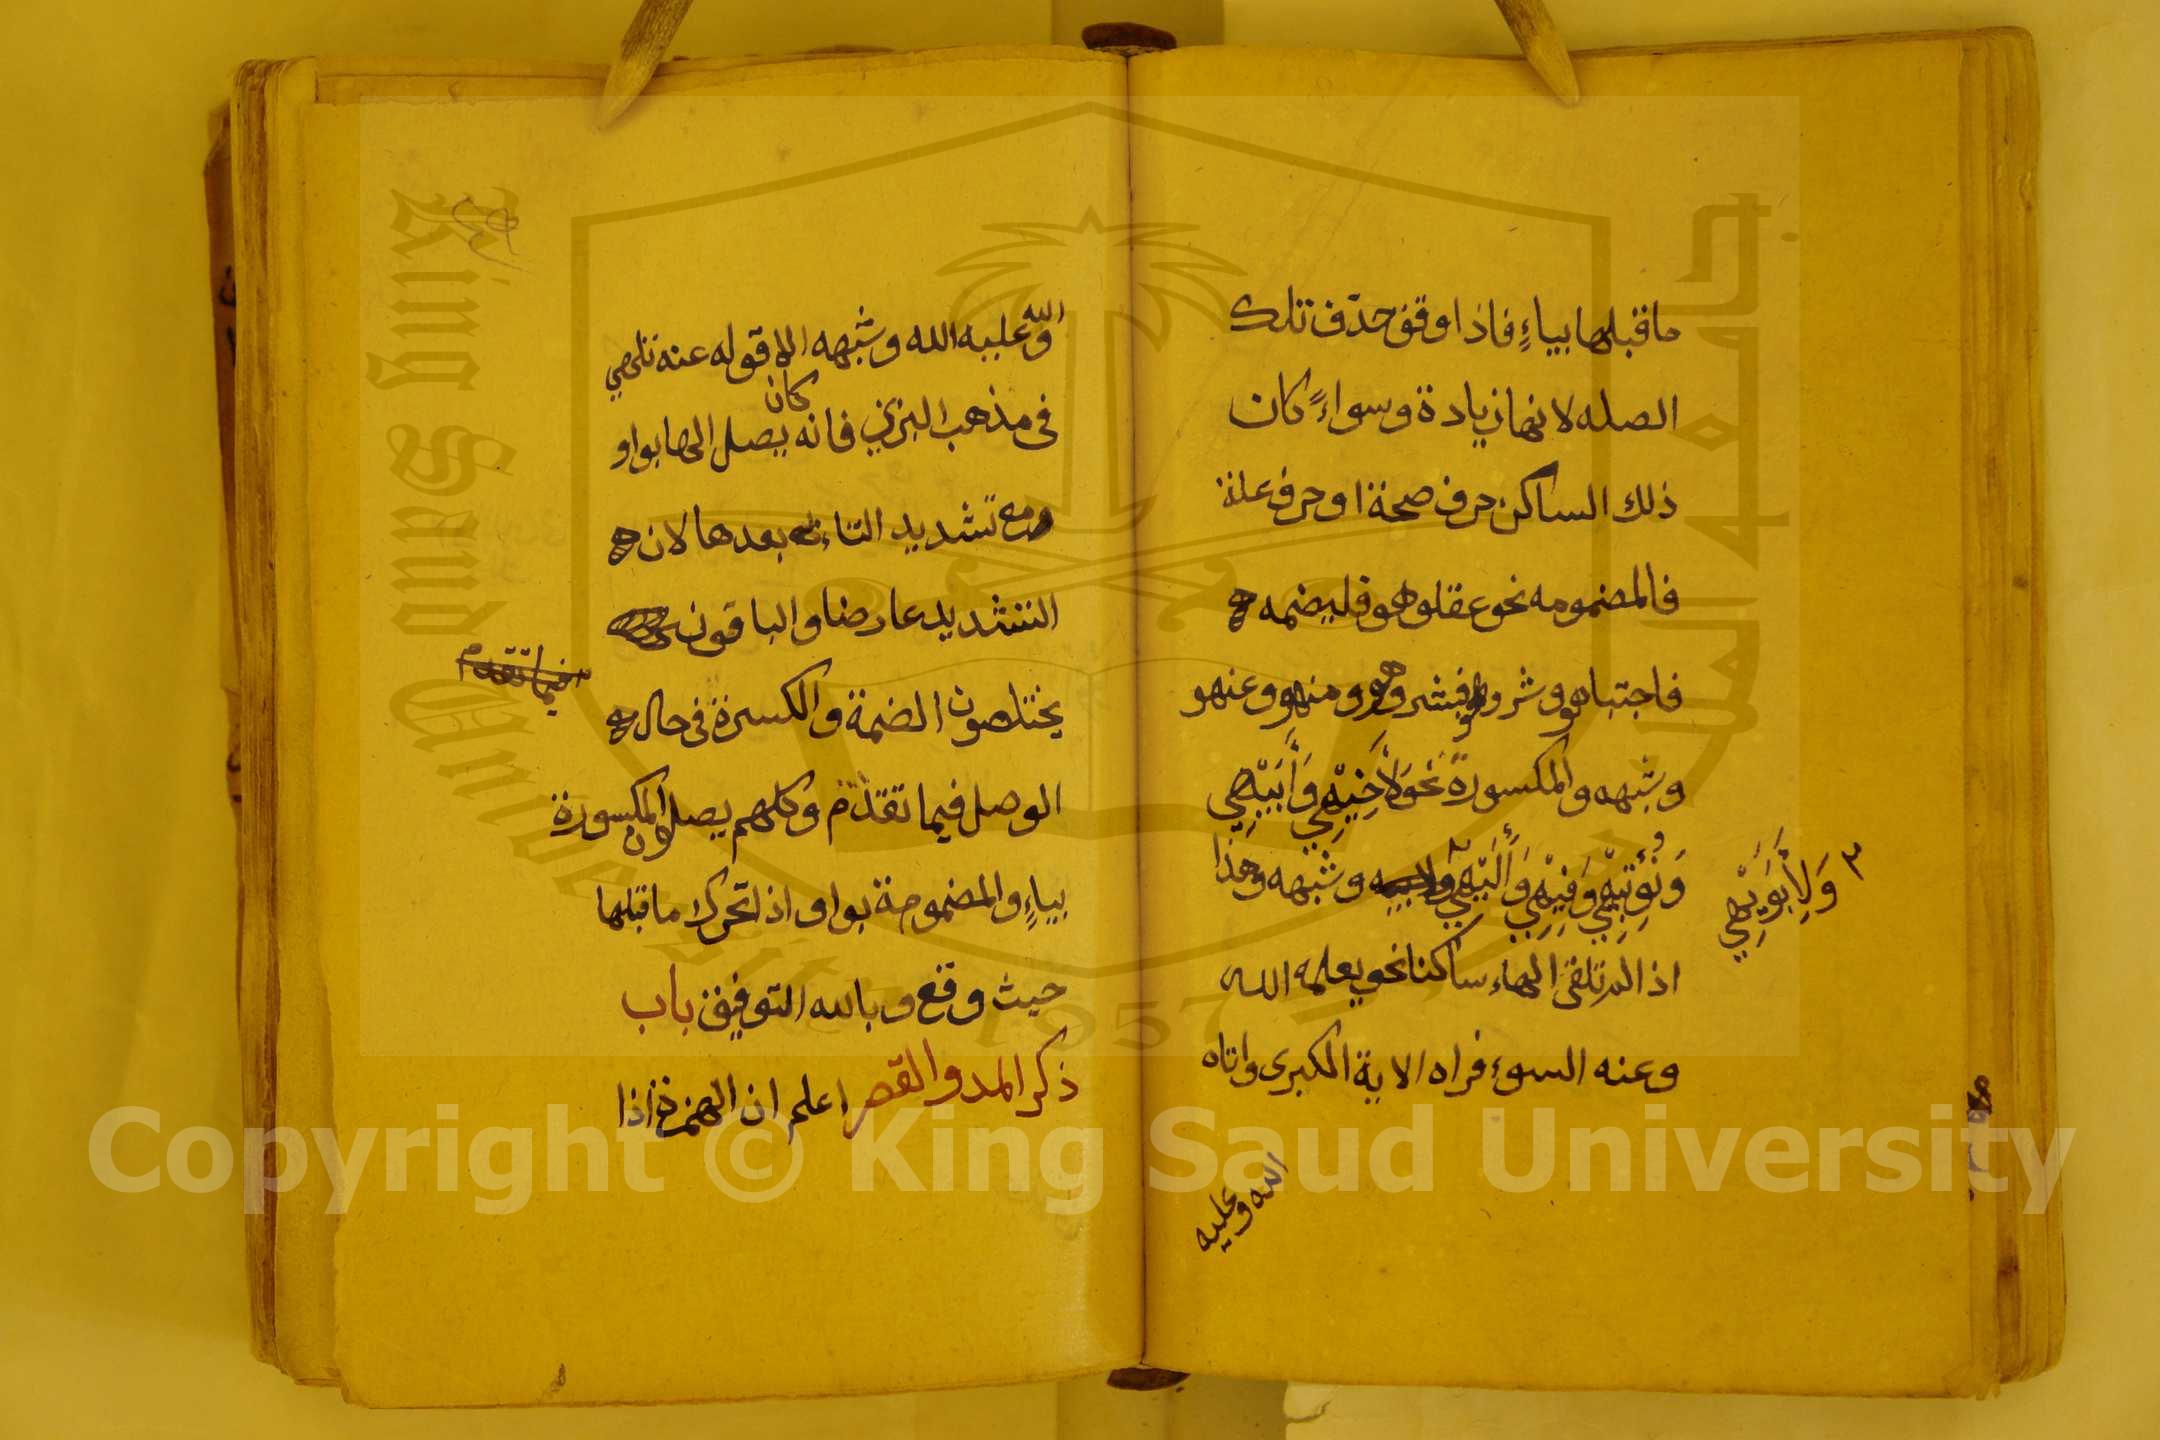 ما قبلها بياءٍ فاذا وقف حذف تلك
الصله لانها زيادة وسواءً كان
ذلك الساكن حرف صحة او حرف علة
فالمضمومه نحو عقلوهو فليضمه
فاجتباهو وشروهو فبشروهو ومنهو وعنهو
وشبهه والمكسورة نحو لأَخِيْهِي وَأَبَيْهِي
وَنُؤْتِيْهِي وَفِيْهِي وَأَلَيْهِي وشبهه وهذا
٣ وَلِأَبَوَيْهِي
اذا لم تلقى الهاء ساكنا نحو يعلمه الله
وعنه السوء فراه الاية الكبرى واتاه
الله وعليه
الله وعليه الله وشبهه الا قوله عنه تلهي
في مذهب البزي فانه كان يصل الها بواو
ومع تشديد التاء بعدها لان
التشديد عارضا والباقون
فيما تقدم
يختلصون الضمة والكسرة في حال
الوصل فيما تقدّم وكلهم يصلون المكسورة
بياءٍ والمضمومة بواو اذا تحرك ما قبلها
حيث وقع وبالله التوفيق باب
ذكر المد والقصر اعلم ان الهمزة اذا
Copyright © King Saud University
King Saud University
جامعة الملك سعود
1957